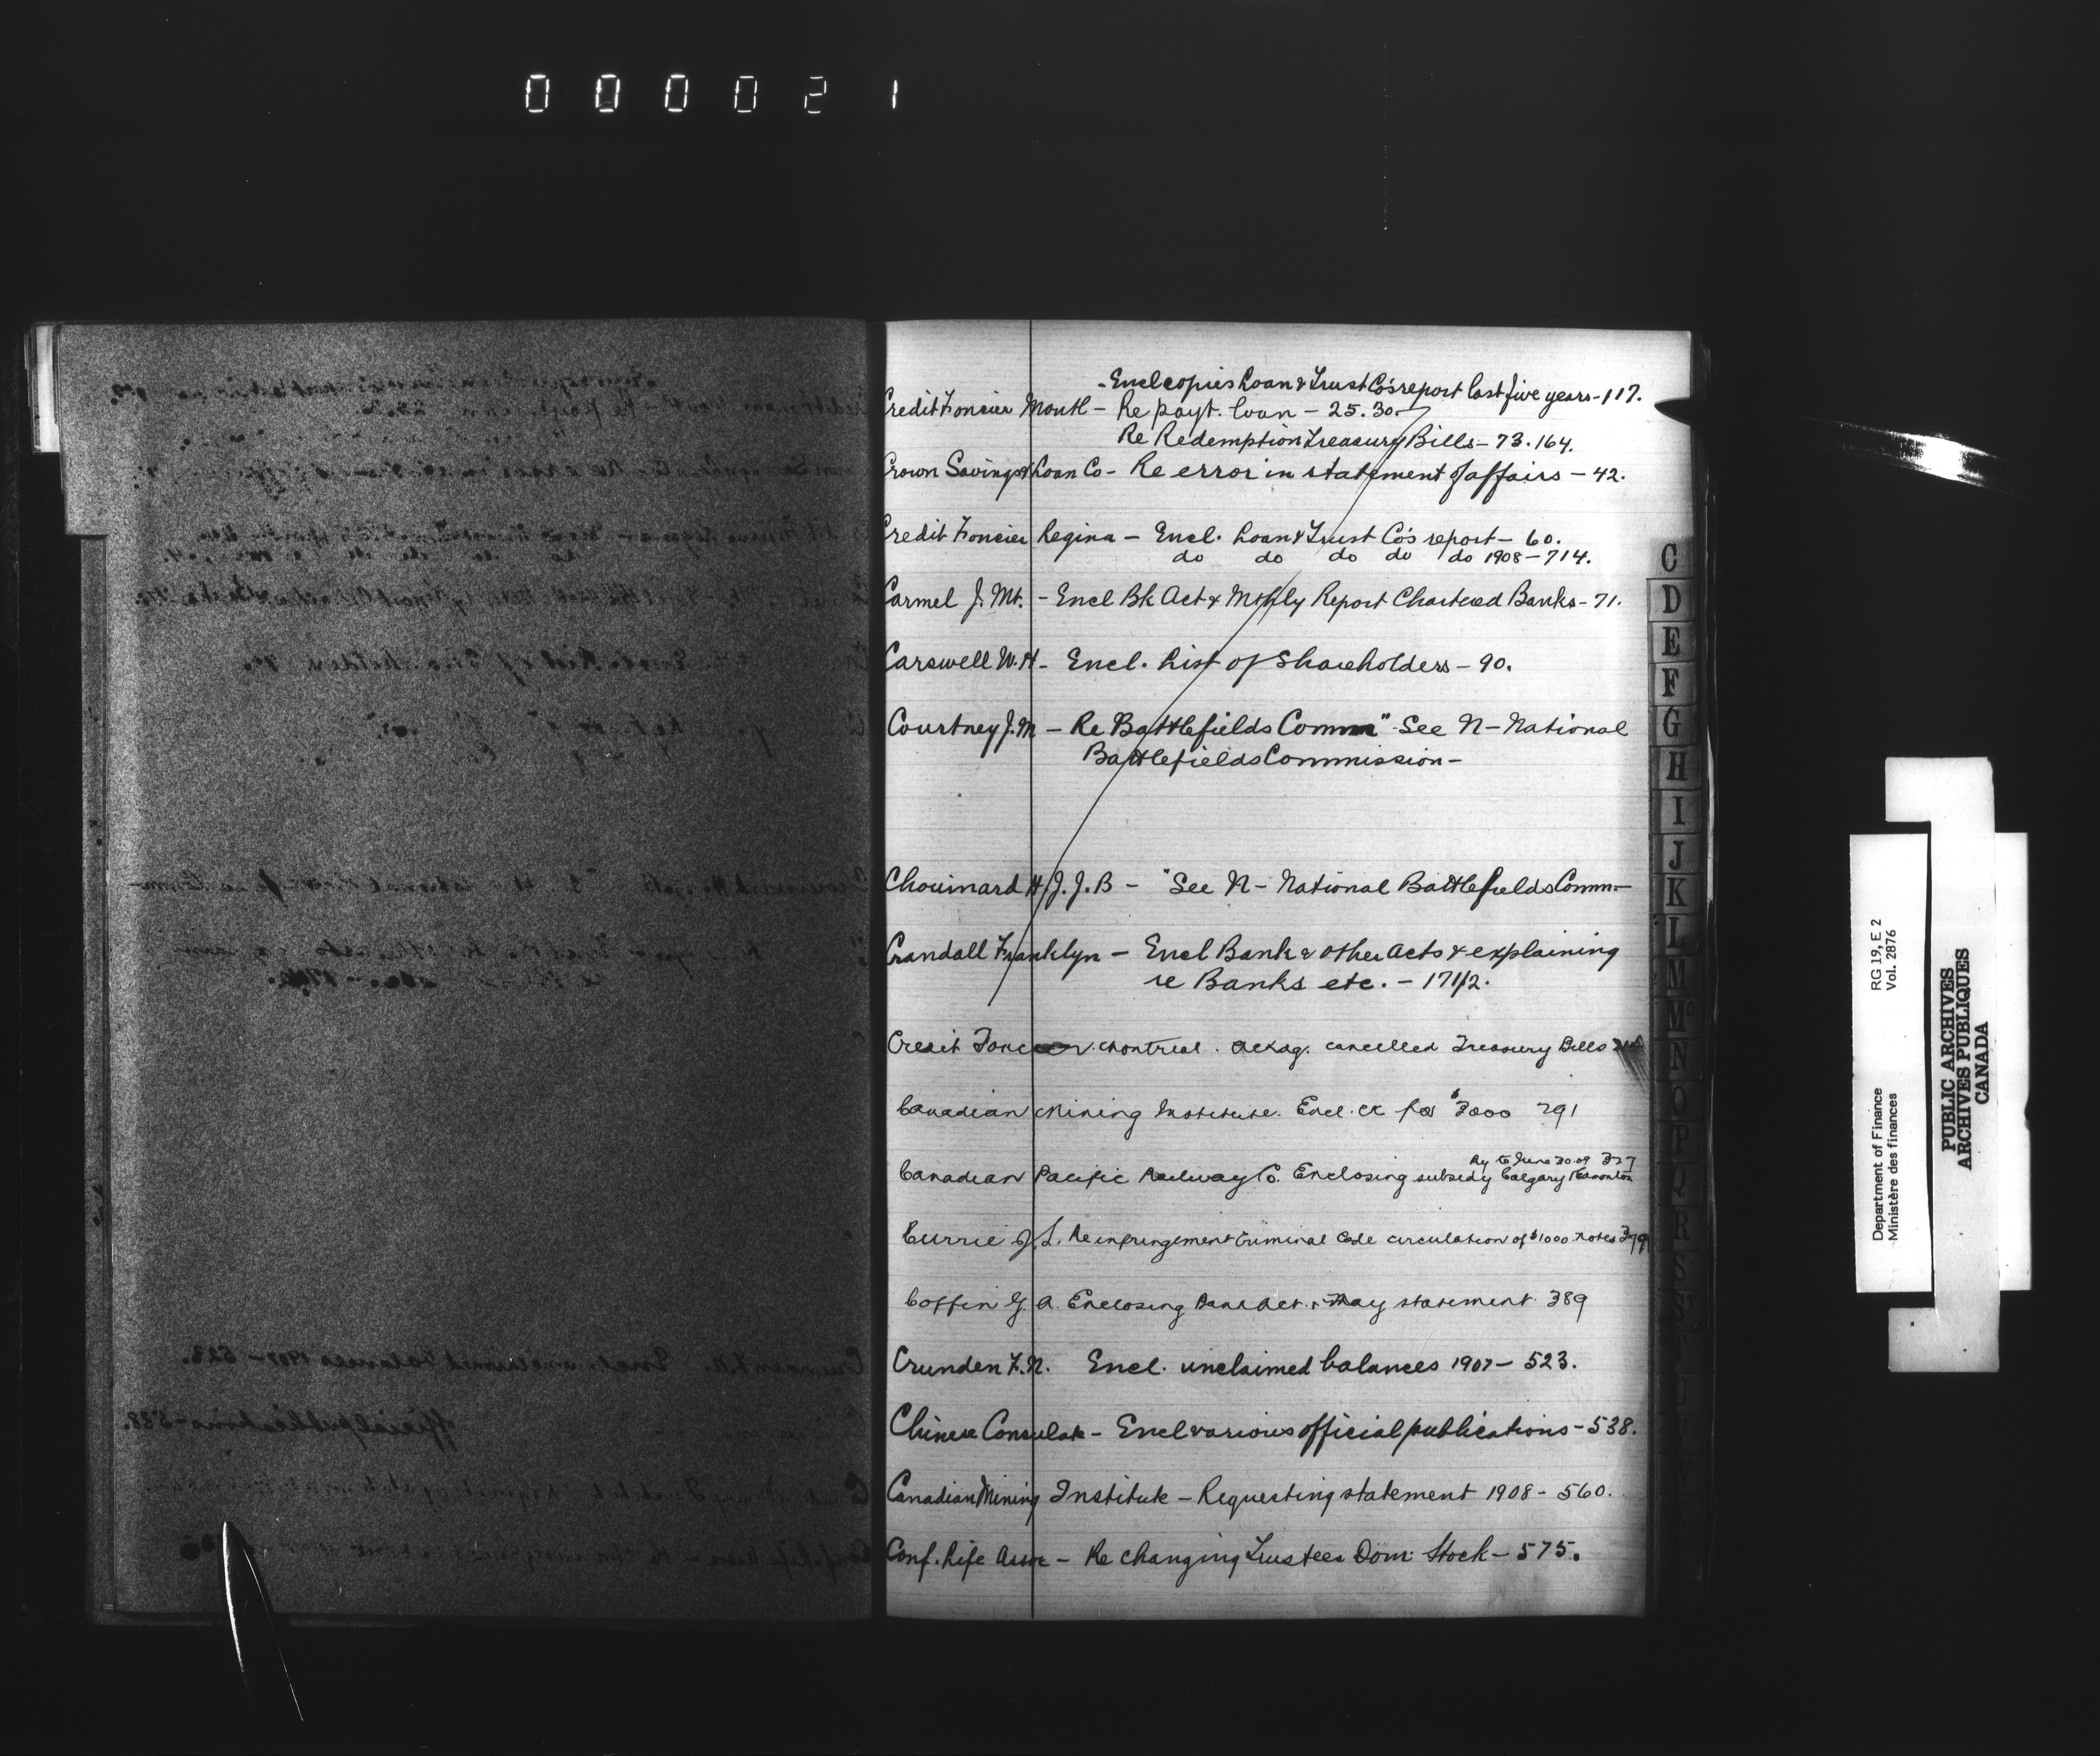 000021
- Encl copies Loan & Trust Co's report last five years - 117.
Credit Foncier Montl - Re payt. loan - 25. 30.
Re Redemption Treasury Bills - 73. 164.
Crown Savings & Loan Co - Re error in statement of affairs - 42.
Credit Foncier Regina - Encl. Loan & Trust Co's report - 60.
do do do do do 1908 - 714.
Carmel J. Mt. - Encl Bk Act & Mthly Report Chartered Banks - 71.
Carswell W. H - Encl. List of Shareholders - 90.
Courtney J. M - Re Battlefields Comm" See N - National
Battlefields Commission -
Chouinard H. J. J. B - "See N - National Battlefields Comm -
Crandall Franklyn - Encl Bank & other Acts & explaining
re Banks etc. - 171/2.
Credit Foncier. Montreal. Ackdg. cancelled Treasury Bills
Canadian Mining Institute. Encl. ck for $3000 291
Ry to June 30.09 327
Canadian Pacific Railway Co. Enclosing subsidy Calgary Edmonton
Currie J. L. Re infringement Criminal Code circulation of $1000 notes 379
Coffin G. A. Enclosing Bank Act. & May statement 389
Crunden F. N. Encl. unclaimed balances 1907 - 523.
Chinese Consulate - Encl various official publications - 538.
Canadian Mining Institute - Requesting statement 1908 - 560.
Conf. Life Assoc - Re changing Trustees Dom. Stock - 575.
C
D
E
F
G
H
I
J
K
L
M
Mc
N
O
P
Q
R
S
Department of Finance RG 19, E 2
Ministère des finances Vol. 2876
PUBLIC ARCHIVES
ARCHIVES PUBLIQUES
CANADA